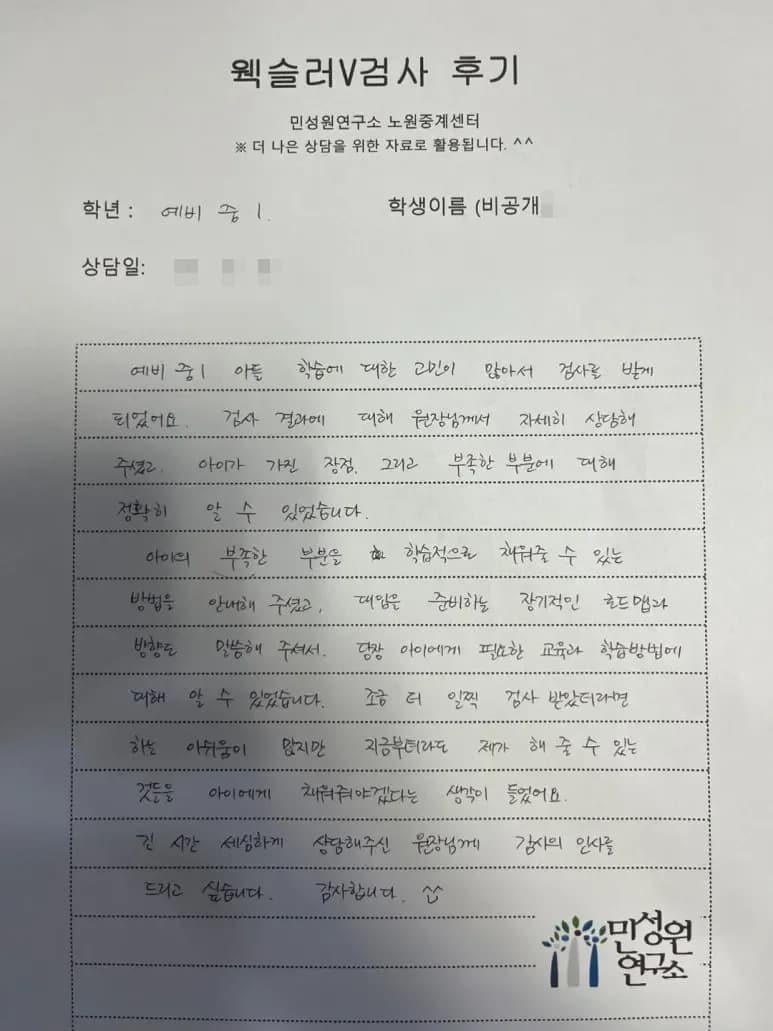 웩슬러V검사 후기
민성원연구소 노원중계센터
※ 더 나은 상담을 위한 자료로 활용됩니다. ^^
학년 : 예비 중1. 학생이름 (비공개
상담일:
예비 중1 아들 학습에 대한 고민이 많아서 검사를 받게
되었어요. 검사 결과에 대해 원장님께서 자세히 상담해
주셨고. 아이가 가진 장점, 그리고 부족한 부분에 대해
정확히 알 수 있었습니다.
아이의 부족한 부분을 학습적으로 채워줄 수 있는
방법을 안내해 주셨고, 대입을 준비하는 장기적인 로드맵과
방향도 말씀해 주셔서. 당장 아이에게 필요한 교육과 학습방법에
대해 알 수 있었습니다. 조금 더 일찍 검사 받았더라면
하는 아쉬움이 많지만 지금부터라도 제가 해 줄 수 있는
것들을 아이에게 채워줘야겠다는 생각이 들었어요.
긴 시간 세심하게 상담해주신 원장님께 감사의 인사를
드리고 싶습니다. 감사합니다. ^^
민성원
연구소